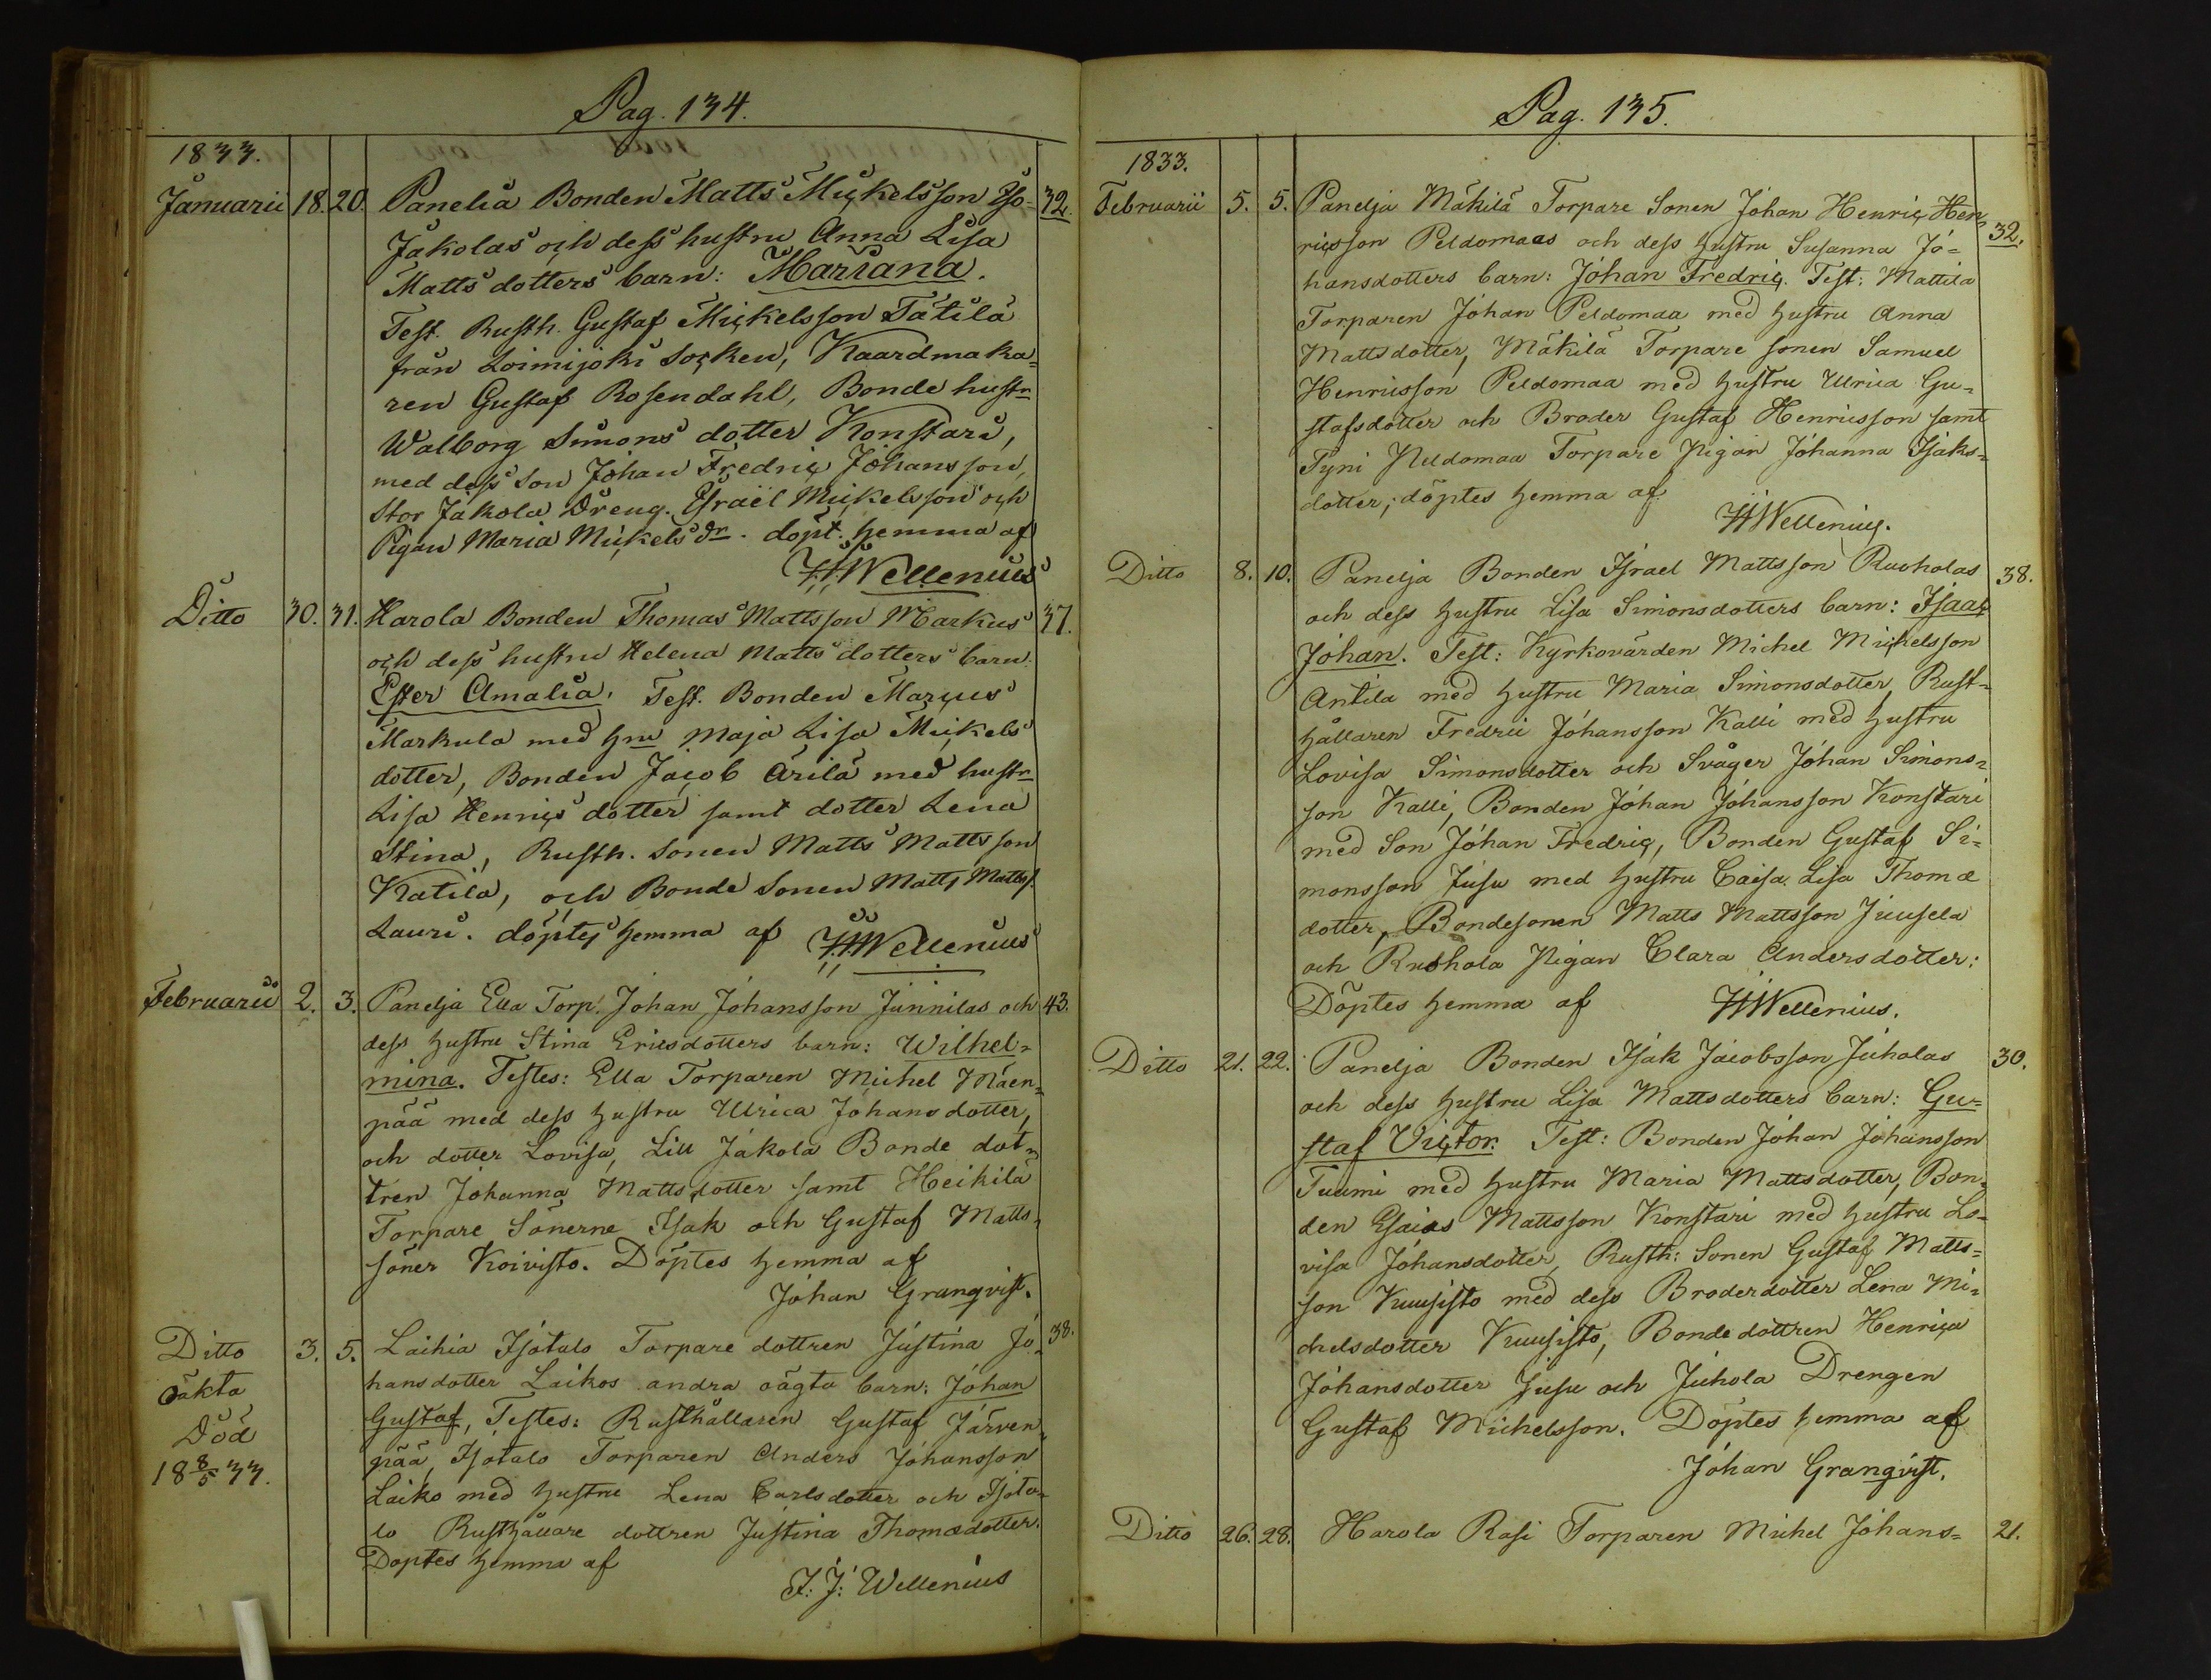 Pag. 134.
1833.
Januarii 18. 20. Panelia Bonden Matts Mickelsson Iso= 32.
Jakolas och dess hustru Anna Lisa
Matts dotters barn: Mariana.
Test. Rusth. Gustaf Mickelsson Tätilä
från Loimijoki Socken, Kaardmaka=
ren Gustaf Rosendahl, Bonde hustr
Walborg Simons dotter Konstari,
med dess Son Johan Fredric Johansson,
Stor Jakola Dreng. Israël Mickelsson och
Pigan Maria Mickels dr. döpt. hemma af
Wellenius
Ditto 30. 31. Harola Bonden Thomas Mattsson Markus 37.
och dess hustru Helena Matts dotters barn.
Ester Amalia. Test. Bonden Marcus
Markula med hru Maja Lisa Mickels
dotter, Bonden Jacob Ärilä med hustr
Lisa Henrics dotter samt dotter Lena
Stina, Rusth. Sonen Matts Mattsson
Katila, och Bonde Sonen Matts Matts.
Lauri. döptes hemma af Wellenius
Februarii 2. 3. Panelja Ella Torp. Johan Johansson Junnilas och 43.
dess hustru Stina Ericsdotters barn: Wilhel=
mina. Testes: Ella Torparen Michel Mäen=
pää med dess hustru Ulrica Johansdotter,
och dotter Lovisa, Lill Jakola Bonde dot=
tren Johanna Mattsdotter samt Heikilä
Torpare Sönerne Isak och Gustaf Matts=
söner Koivisto. Döptes hemma af
Johan Granqvist.
Ditto 3. 5. Laihia Isotalo Torpare dottren Justina Jo= 38.
oäkta
Död
18 8/5 33.
hansdotter Laikos andra oägta barn: Johan
Gustaf, Testes: Rusthållaren Gustaf Järven=
pää, Isotalo Torparen Anders Johansson
Laiko med hustru Lena Carlsdotter och Isota=
lo Rusthållare dottren Justina Thomædotter.
Döptes hemma af
J: J: Wellenius
Pag. 135.
1833.
Februarii 5. 5. Panelja Mäkilä Torpare Sonen Johan Henric Hen= 32.
ricsson Peldomaas och dess hustru Susanna Jo=
hansdotters barn: Johan Fredric. Test: Mattila
Torparen Johan Peldomaa med hustru Anna
Mattsdotter, Mäkilä Torpare sonen Samuel
Henricsson Peldomaa med hustru Ulrica Gu=
stafsdotter och Broder Gustaf Henricsson samt
Tyni Peldomaa Torpare Pigan Johanna Isaks=
dotter; döptes hemma af
Wellenius.
Ditto 8. 10. Panelja Bonden Israel Mattsson Ruoholas 38.
och dess hustru Lisa Simonsdotters barn: Isaac
Johan. Test: Kyrkovärden Michel Michelsson
Antila med hustru Maria Simonsdotter, Rust=
hållaren Fredric Johansson Kalli med hustru
Lovisa Simonsdotter och Svåger Johan Simons=
son Kalli, Bonden Johan Johansson Konstari
med Son Johan Fredric, Bonden Gustaf Si=
monsson Jusu med hustru Caisa Lisa Thomæ
dotter, Bondesonen Matts Mattsson Juusela
och Ruohola Pigan Clara Andersdotter:
Döptes hemma af Wellenius.
Ditto 21. 22. Panelja Bonden Isak Jacobsson Juholas 30.
och dess hustru Lisa Mattsdotters barn: Gu=
staf Victor. Test: Bonden Johan Johansson
Tuumi med hustru Maria Mattsdotter, Bon=
den Esaias Mattsson Konstari med hustru Lo=
visa Johansdotter, Rusth: Sonen Gustaf Matts=
son Kuusisto med dess Broderdotter Lena Mi=
chelsdotter Kuusisto, Bonde dottren Henrica
Johansdotter Jusu och Juhola Drengen
Gustaf Michelsson. Döptes hemma af
Johan Granqvist.
Ditto 26. 28. Harola Rasi Torparen Michel Johans= 21.